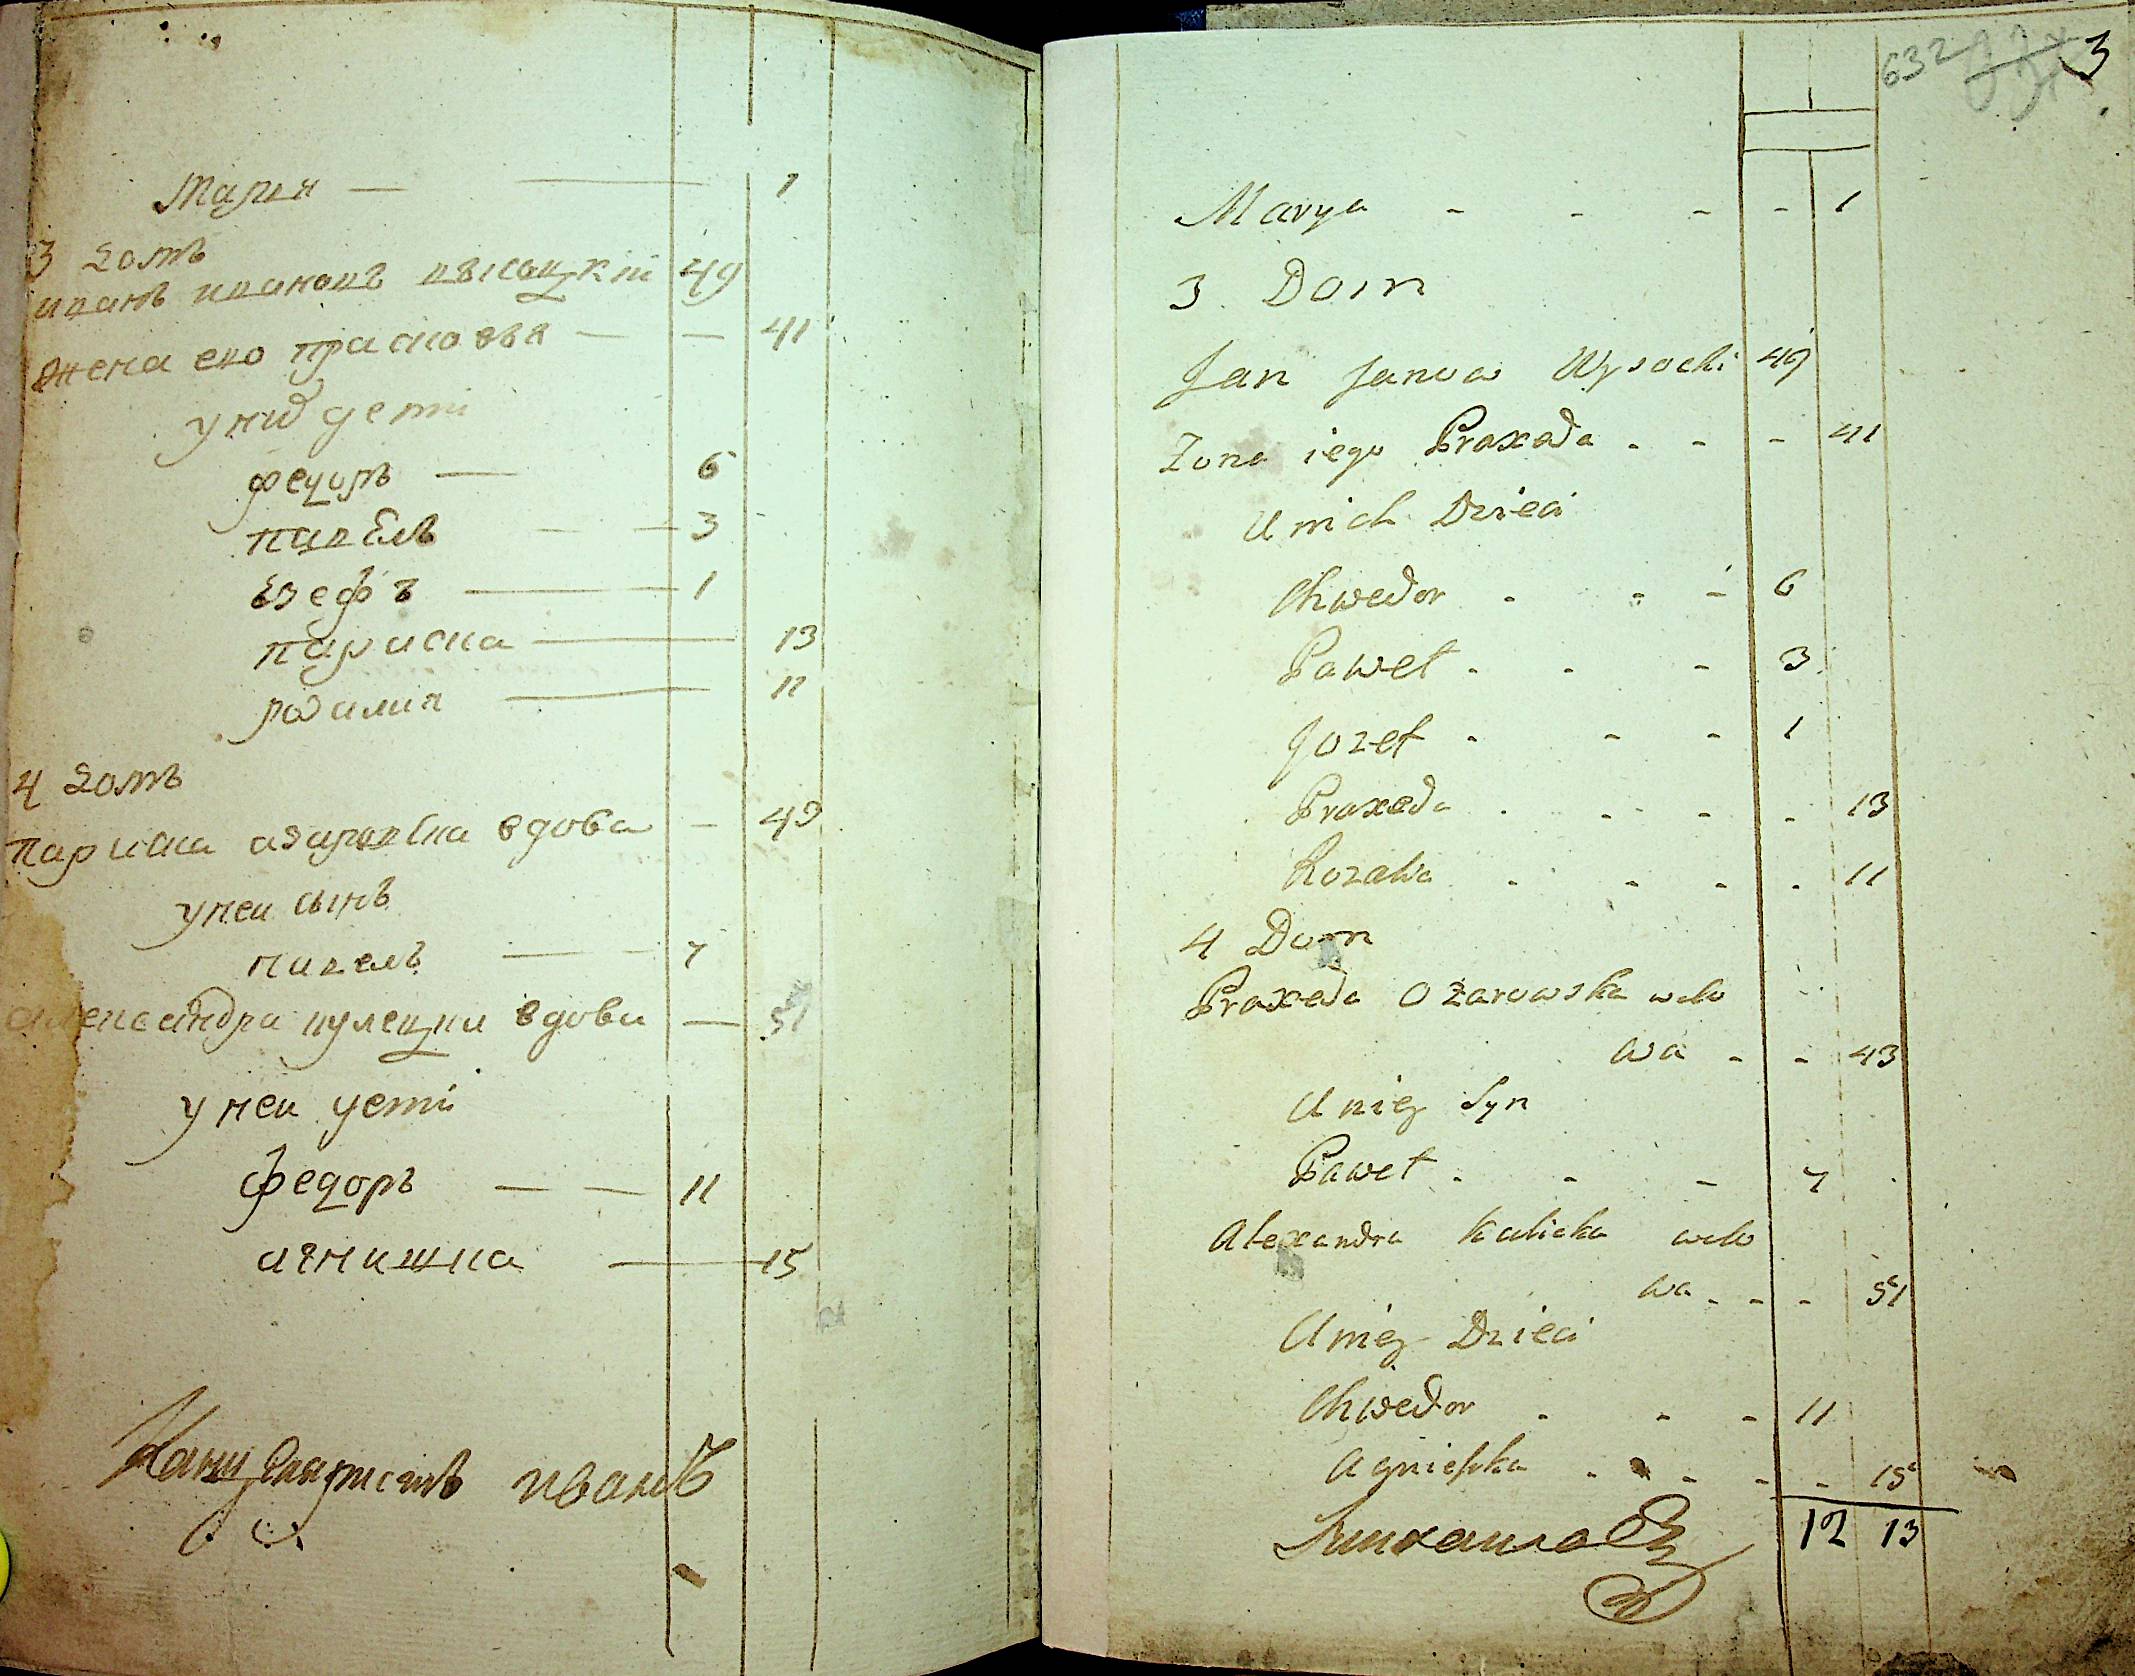 Мария — — 1
3 домъ
иванъ ивановъ высоцкий 49
жена ево прасковья — — 41
у них дети
федоръ — 6
павелъ — — 3
езефъ — 1
параска — 13
розалия — 11
4 домъ
параска азаровска вдова — 43
у неи сынъ
павелъ — 7
александра кулецка вдова — 51
у неи дети
федоръ — — 11
агнишка — 15
Канцеляристъ Иванов
632 3
Marya - - - - 1
3 Dom
Jan Janow Wysocki 49
Zona iego Praxeda - - - 41
U nich Dzieci
Chwedor - - - 6
Paweł - - - 3
Jozef - - - 1
Praxeda - - - - 13
Rozalia - - - - 11
4 Dom
Praxeda Ożarowska wdo
wa - - 43
U niey Syn
Paweł - - - 7
Alexandra Kulicka wdo
wa - - - 51
U niey Dzieci
Chwedor - - - 11
Agnieszka - - - - 15
12 13